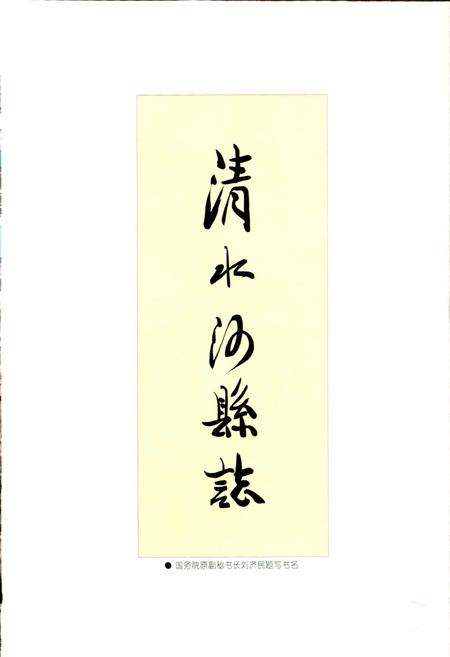 清水河縣誌
● 国务院原副秘书长刘济民题写书名